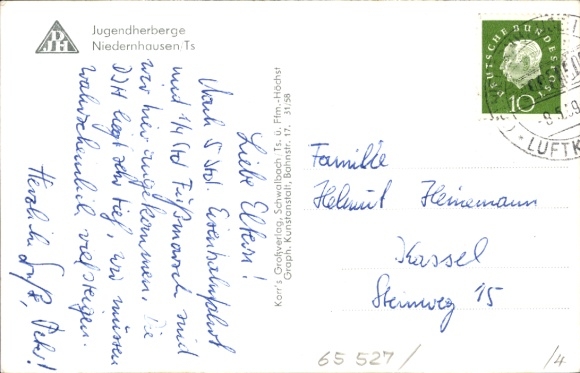 DJH
Jugendherberge
Niedernhausen/Ts
Liebe Eltern!
Nach 5 Std. Eisenbahnfahrt
und 1/4 Std Fußmarsch sind
wir hier angekommen. Die
DJH liegt sehr tief, wir müssen
wahrscheinlich viel steigen.
Herzliche Grüße, Peter!
Karr's Großverlag, Schwalbach. Ts. ü. Ffm.-Höchst
Graph. Kunstanstalt, Bahnstr. 17. 31/58
DEUTSCHE BUNDESPOST
10
-8.5.59
LUFTK
Familie
Helmut Heinemann
Kassel
Steinweg 15
65 527/
/4